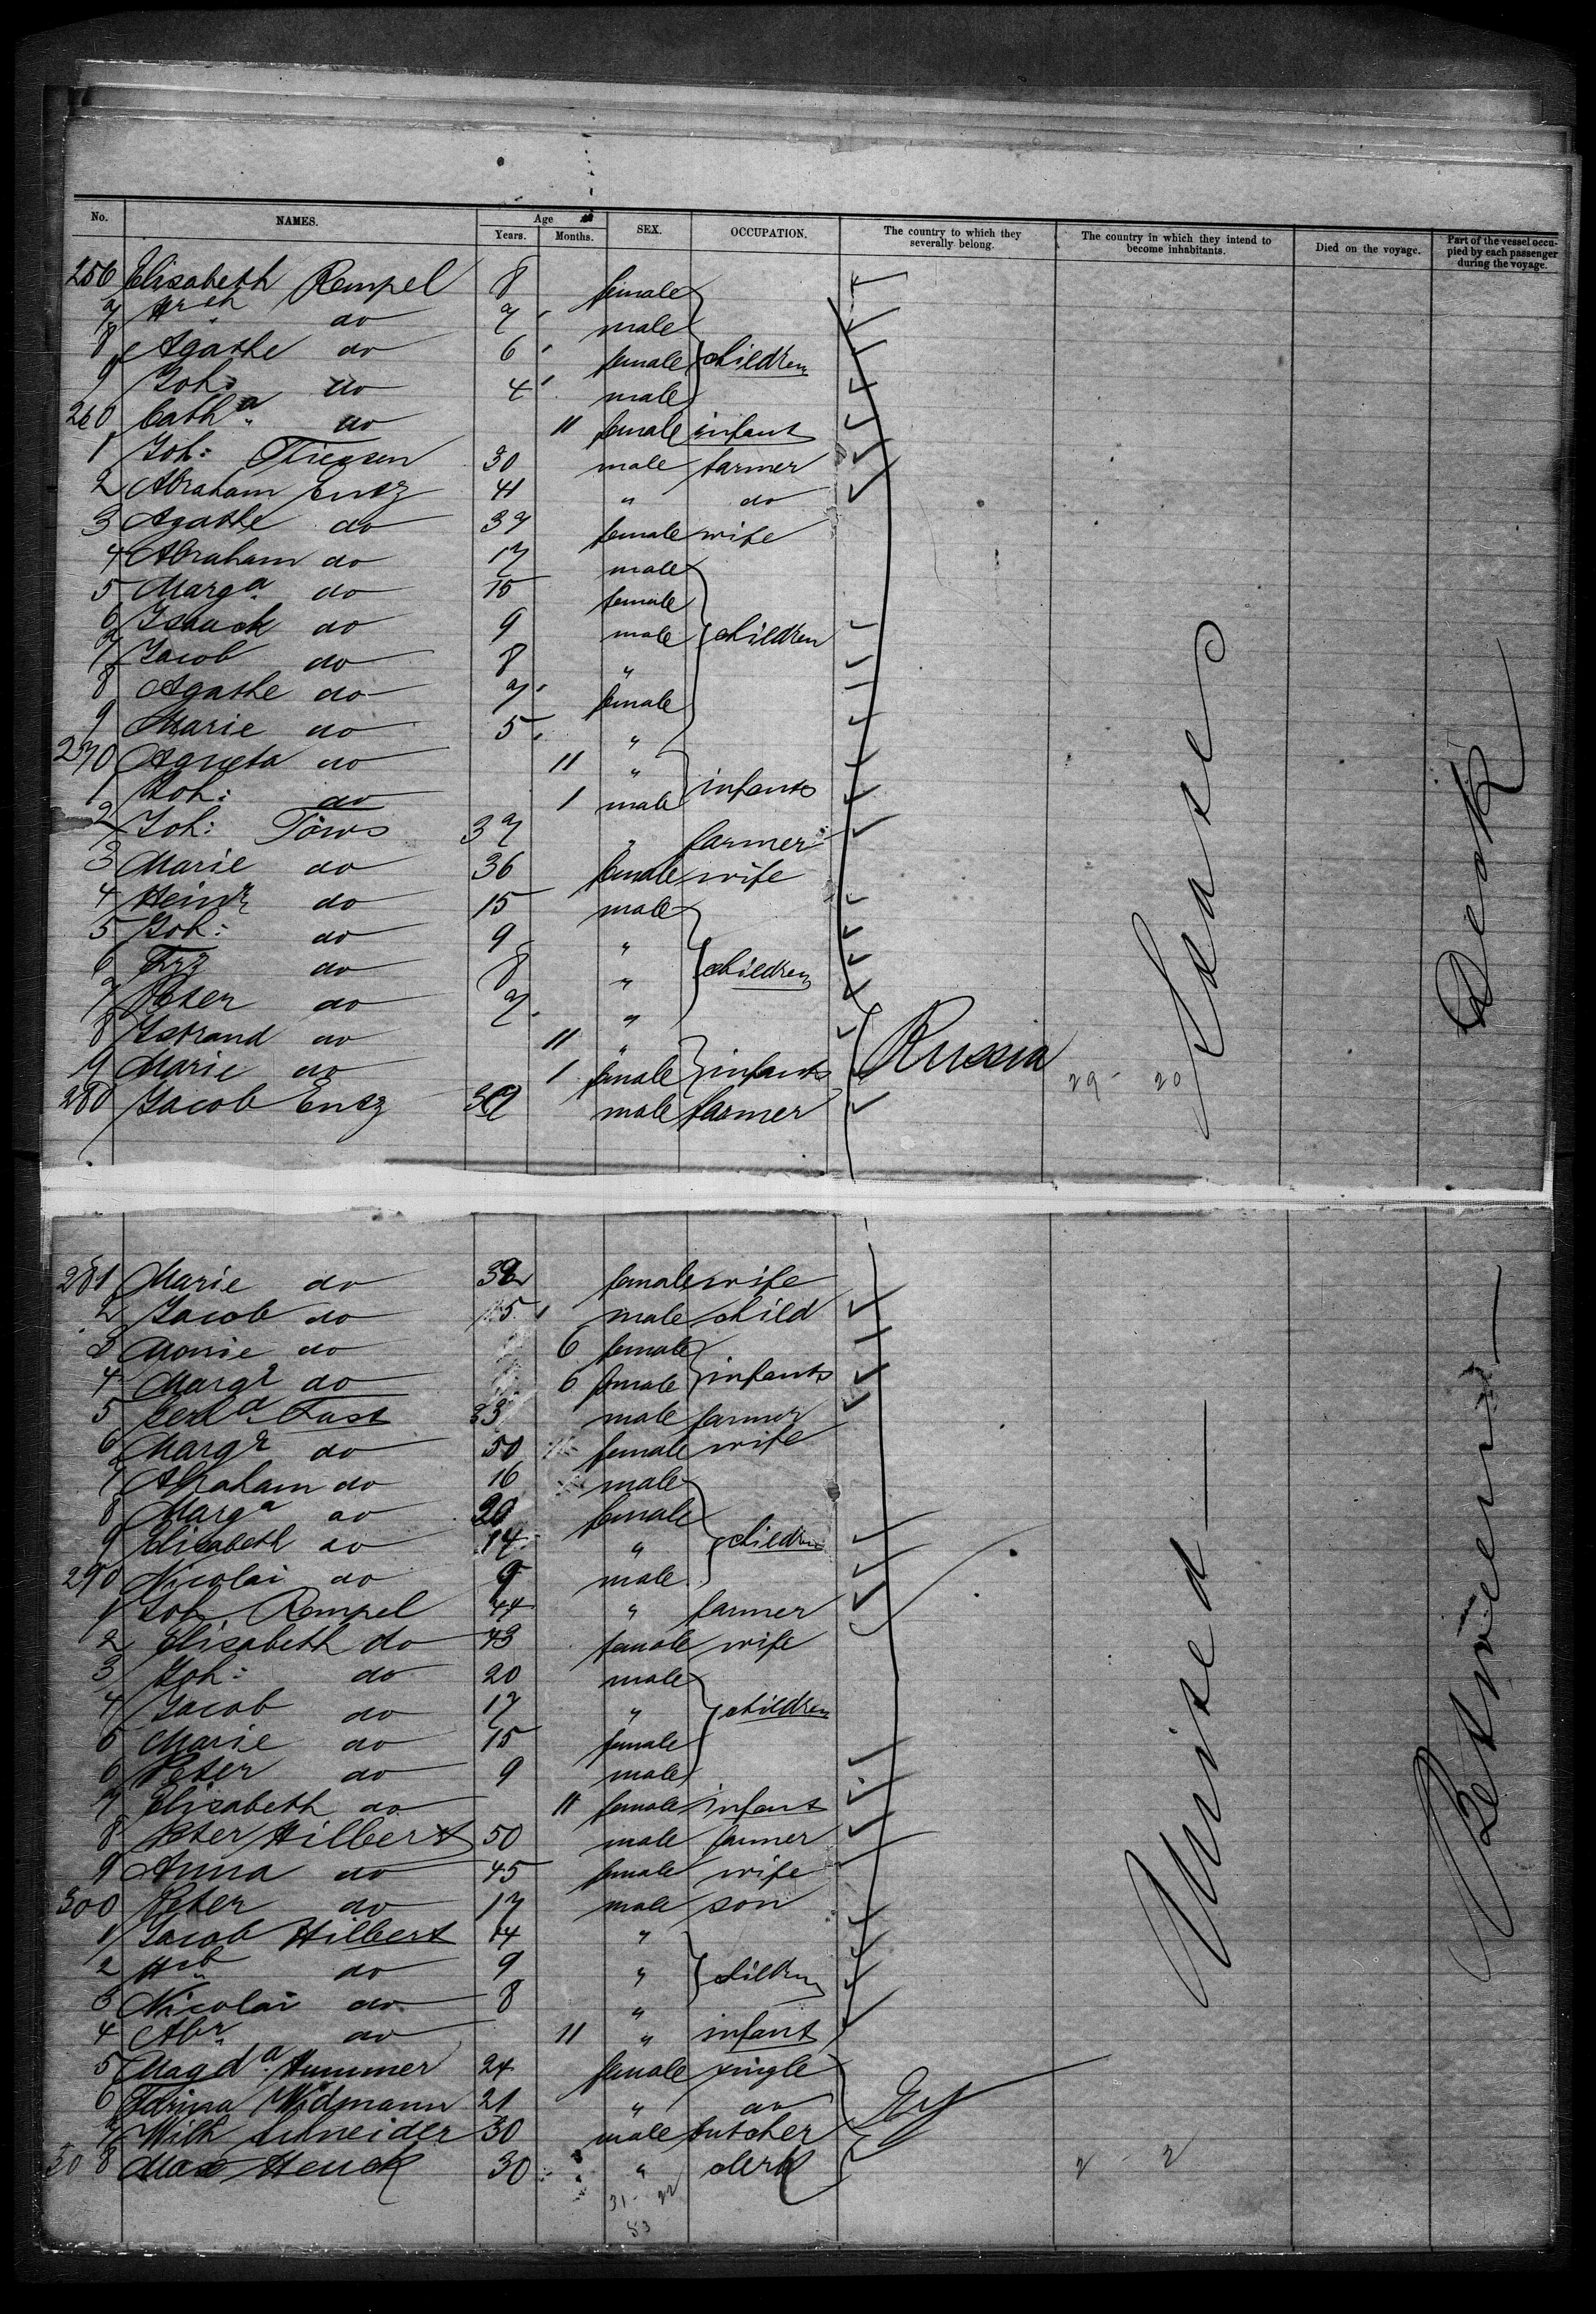 No. NAMES. Age Years. Months. SEX. OCCUPATION. The country to which they severally belong. The country in which they intend to become inhabitants. Died on the voyage. Part of the vessel occupied by each passenger during the voyage.
256 Elisabeth Rempel 8 female
7 Hrch do 7 male
8 Agathe do 6 female children
9 Joh: do 4 male
260 Catha do 11 female infant
1 Joh: Thiessen 30 male farmer
2 Abraham Entz 41 " do
3 Agathe do 37 female wife
4 Abraham do 17 male
5 Marga do 15 female
6 Isaack do 9 male children
7 Jacob do 8 "
8 Agathe do 7 female
9 Marie do 5 "
270 Agneta do 11 "
1 Joh: do 1 male infants
2 Joh: Töws 37 " farmer
3 Marie do 36 female wife
4 Heinr do 15 male
5 Joh: do 9 "
6 Frz do 8 " children
7 Peter do 7 "
8 do 11 "
9 Marie do 1 female infants Russia 29 - 20
280 Jacob Entz male farmer
281 Marie do female wife
2 Jacob do male child
3 Marie do 6 female
4 Margr do 6 female infants
5 Fast male farmer
6 Margr do 50 female wife
7 Abraham do 16 male
8 Marga do female
9 Elisabeth do 14 " children
290 Nicolai do 9 male
1 Joh Rempel 44 " farmer
2 Elisabeth do 43 female wife
3 Joh: do 20 male
4 Jacob do 17 " children
5 Marie do 15 female
6 Peter do 9 male
7 Elisabeth do 11 female infant
8 Peter Hilbert 50 male farmer
9 Anna do 45 female wife
300 Peter do 17 male son
1 Jacob Hilbert 14 "
2 do 9 " children
3 Nicolai do 8 "
4 Abr do 11 " infant
5 Magda Hummer 24 female single
6 Widmann 21 " do
7 Wilh Schneider 30 male butcher
308 Max Henck 30 " clerk 2 - 2
31 - 22
53
United States
Between Deck